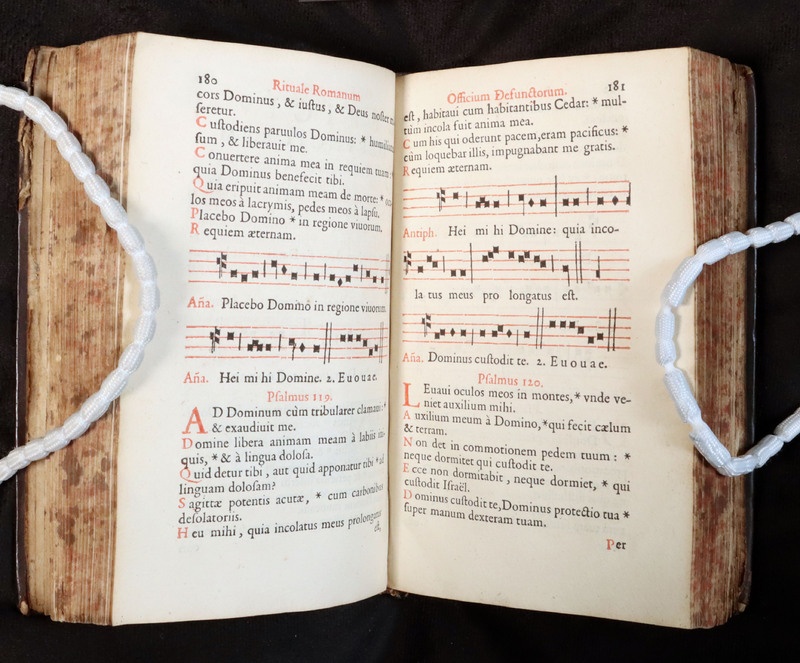 180
Rituale Romanum
cors Dominus, & iuſtus, & Deus noſter
ſeretur.
Cuſtodiens paruulos Dominus: *
ſum, & liberauit me.
Conuertere anima mea in requiem tuam
quia Dominus benefecit tibi.
Quia eripuit animam meam de morte: *
los meos à lacrymis, pedes meos à lapſu.
Placebo Domino * in regione viuorum.
Requiem æternam.
Aña. Placebo Domino in regione viuorum.
Aña. Hei mi hi Domine. 2. Euouae.
Pſalmus 119.
AD Dominum cùm tribularer clamaui: *
& exaudiuit me.
Domine libera animam meam à labiis
quis, * & à lingua doloſa.
Quid detur tibi, aut quid apponatur tibi * ad
linguam doloſam?
Sagittæ potentis acutæ, * cum carbonibus
deſolatoriis.
Heu mihi, quia incolatus meus prolongatus
eſt,
Officium Defunctorum.
181
eſt, habitaui cum habitantibus Cedar: * mul-
tùm incola fuit anima mea.
Cum his qui oderunt pacem, eram pacificus: *
cùm loquebar illis, impugnabant me gratis.
Requiem æternam.
Antiph. Hei mi hi Domine: quia inco-
la tus meus pro longatus eſt.
Aña. Dominus cuſtodit te. 2. Euouae.
Pſalmus 120.
LEuaui oculos meos in montes, * vnde ve-
niet auxilium mihi.
Auxilium meum à Domino, * qui fecit cælum
& terram.
Non det in commotionem pedem tuum: *
neque dormitet qui cuſtodit te.
Ecce non dormitabit, neque dormiet, * qui
cuſtodit Iſraël.
Dominus cuſtodit te, Dominus protectio tua *
ſuper manum dexteram tuam.
Per